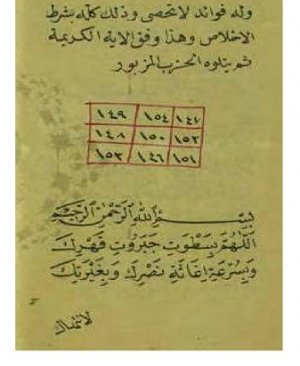 وله فوائد لا تحصى وذلك كله بشرط
الاخلاص وهذا وفق الاية الكريمة
ثم يتلوه الحزب المزبور
١٤٩ ١٥٤ ١٤٧
١٤٨ ١٥٠ ١٥٢
١٥٣ ١٤٦ ١٥١
بسم الله الرحمن الرحيم
اَللّٰهُمَّ بِسَطْوَتِ جَبَرُوتِ قَهْرِكَ
وَبِسُرْعَةِ اِغَاثَةِ نَصْرِكَ وَبِغَيْرَتِكَ